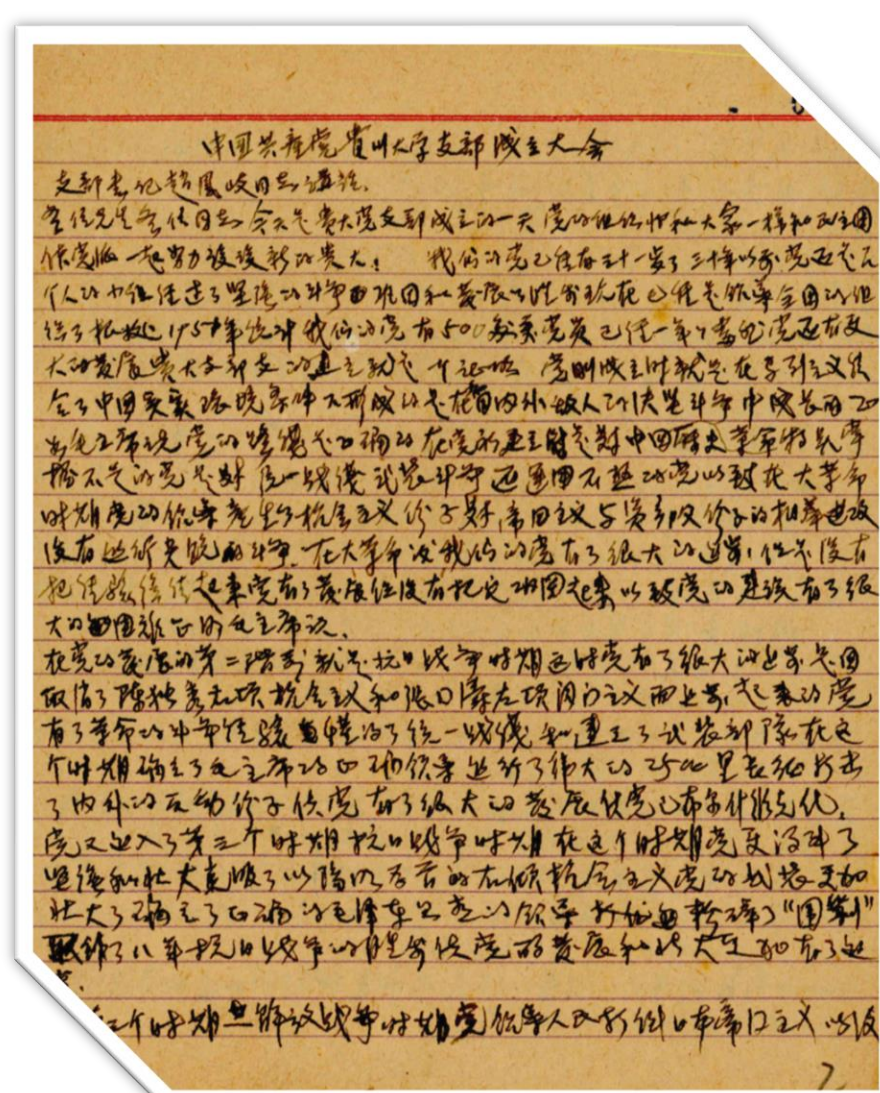 中国共産党貴州大学支部成立大会
支部書记趙鳳岐同志講話.
各位先生各位同志 今天是贵大党支部成立的一天 党的组织惟和大家一样和民主團
体党派一起努力建设新的贵大! 我们的党已经有三十一岁了 三十年以前党还是几
个人的小组经过了坚强的斗争巩固和发展 现在已经是领导全国的组
织了根据1951年统计我们的党有500多萬党员已经一年了 党还有更
大的发展贵大支部的建立就是一个证明 党刚成立时就是在马列主义结
合了中国实际环境条件下形成的是在国内外敌人的决坚斗争中成长的 正
如毛主席说党的路线是正确的在党初建立时是对中国历史革命特点掌
握不足的党是对统一战线武装斗争还运用不熟的党以致在大革命
时期党的领导产生了机会主义份子对帝国主义与资 的相
没有进行 的斗争.在大革命后我们的党有了很大的进步,但是没有
把经验综结起来党有了发展但没有把它巩固起来以致党的建设有了很
大的困难正如毛主席说.
在党的发展的第二阶段就是抗日战争时期这时党有了很大的进步是因
取消了陈独秀右项机会主义和张国焘左项闭门主义而进步起来的党
有了革命的斗争经验 懂的了统一战线和建立了武装部隊在这
个时期确立了毛主席的正确领导进行了伟大的25000里长征打击
了内外的反动份子使党有了很大的发展使党已布尔什维克化.
党又进入了第三个时期抗日战争时期在这个时期党更得到了
坚强和壮大克服了以 的右倾机会主义党的武装更加
壮大了确立了正确的毛泽东思想的领导 粉碎了“围剿”
取得了八年抗日战争的胜利使党的发展和壮大更加有了
三个时期是解放战争时期党领导人民打倒日本帝国主义以後
2